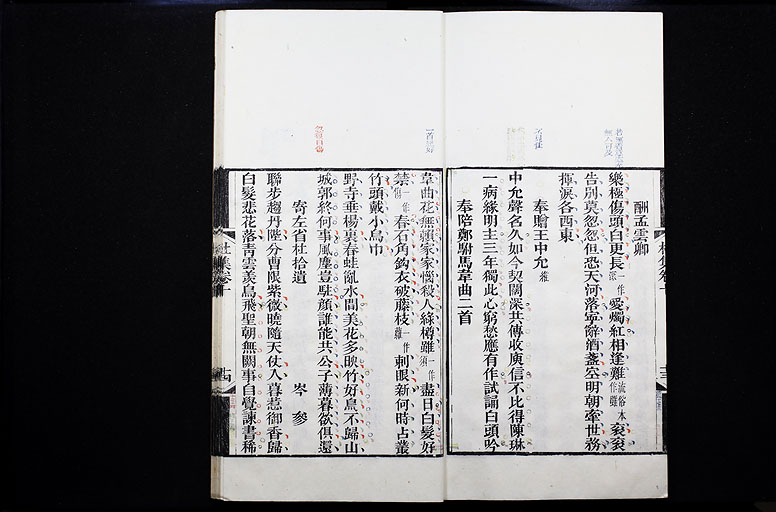 酬孟雲卿
樂極傷頭白更長一作深愛燭紅相逢難流俗本作雖袞袞
告別莫悤悤但恐天河落寧辭酒盞空明朝牽世務
揮淚各西東
奉贈王中允維
中允聲名久如今契闊深共傳收庾信不比得陳琳
一病緣明主三年獨此心窮愁應有作試誦白頭吟
奉陪鄭駙馬韋曲二首
韋曲花無賴家家惱殺人綠樽雖一作須盡日白髮好
禁一作傷春石角鈎衣破藤枝一作蘿刺眼新何時占叢
竹頭戴小烏巾
野寺垂楊裏春畦亂水間美花多映竹好鳥不歸山
城郭終何事風塵豈駐顏誰能共公子薄暮欲俱還
寄左省杜拾遺 岑參
聯步趨丹陛分曹限紫微曉隨天仗入暮惹御香歸
白髮悲花落青雲羨鳥飛聖朝無闕事自覺諫書稀
杜集卷十